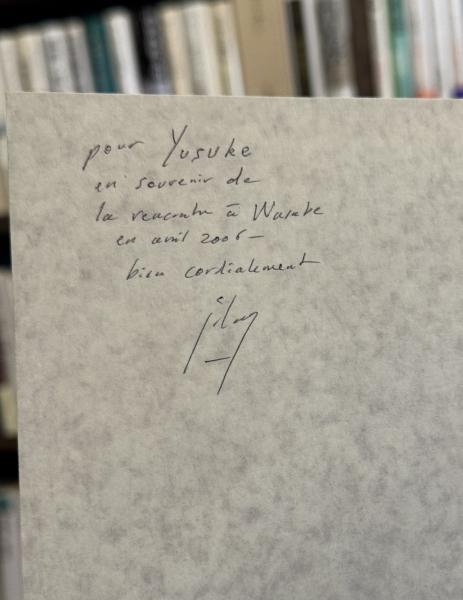 pour Yusuke
en souvenir de
la rencontre à
en avril 2006 –
bien cordialement